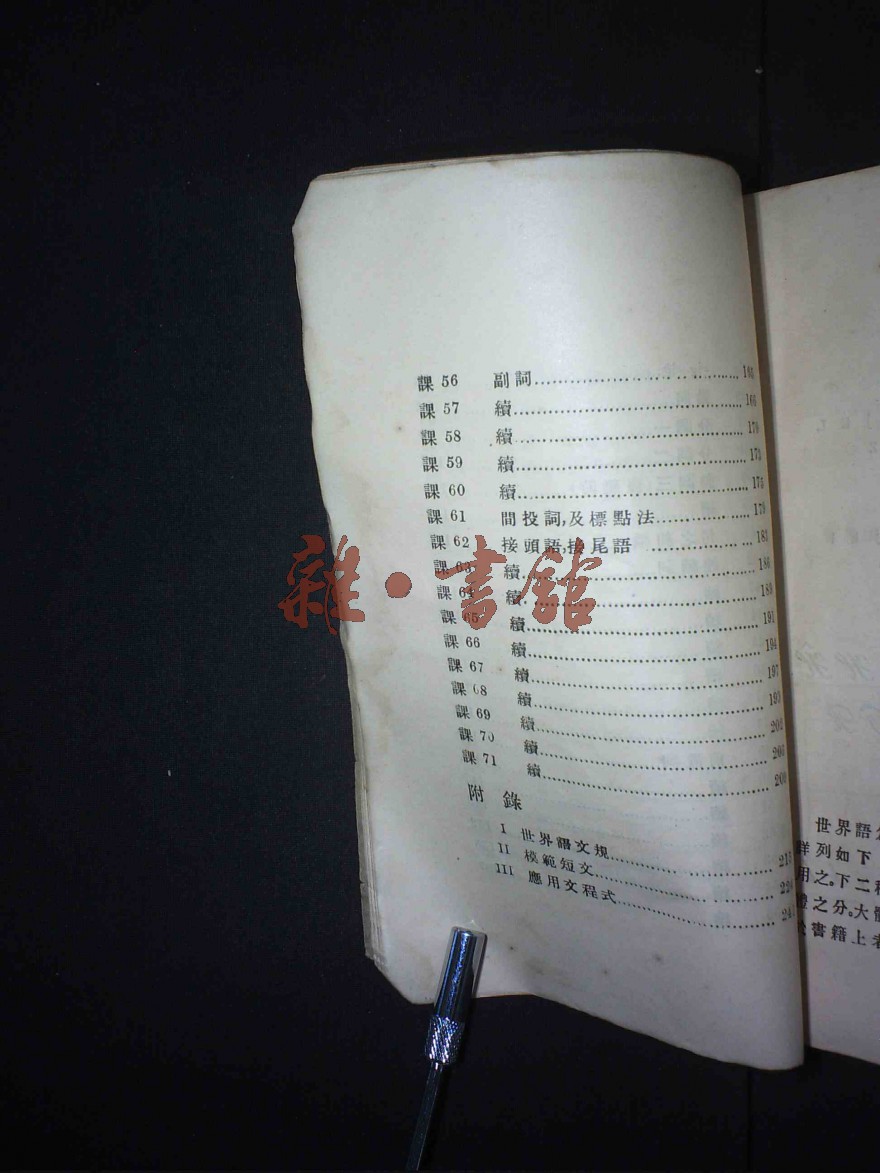 課 56 副詞
課 57 續 168
課 58 續 170
課 59 續 173
課 60 續 175
課 61 間投詞,及標點法
課 62 接頭語,接尾語 183
課 63 續 186
課 64 續 189
課 65 續 191
課 66 續 194
課 67 續 197
課 68 續
課 69 續
課 70 續
課 71 續
附錄
I 世界語文規
II 模範短文
III 應用文程式
雜·書館
世界語
詳列如下
用之。下二
之分。大體
書籍上